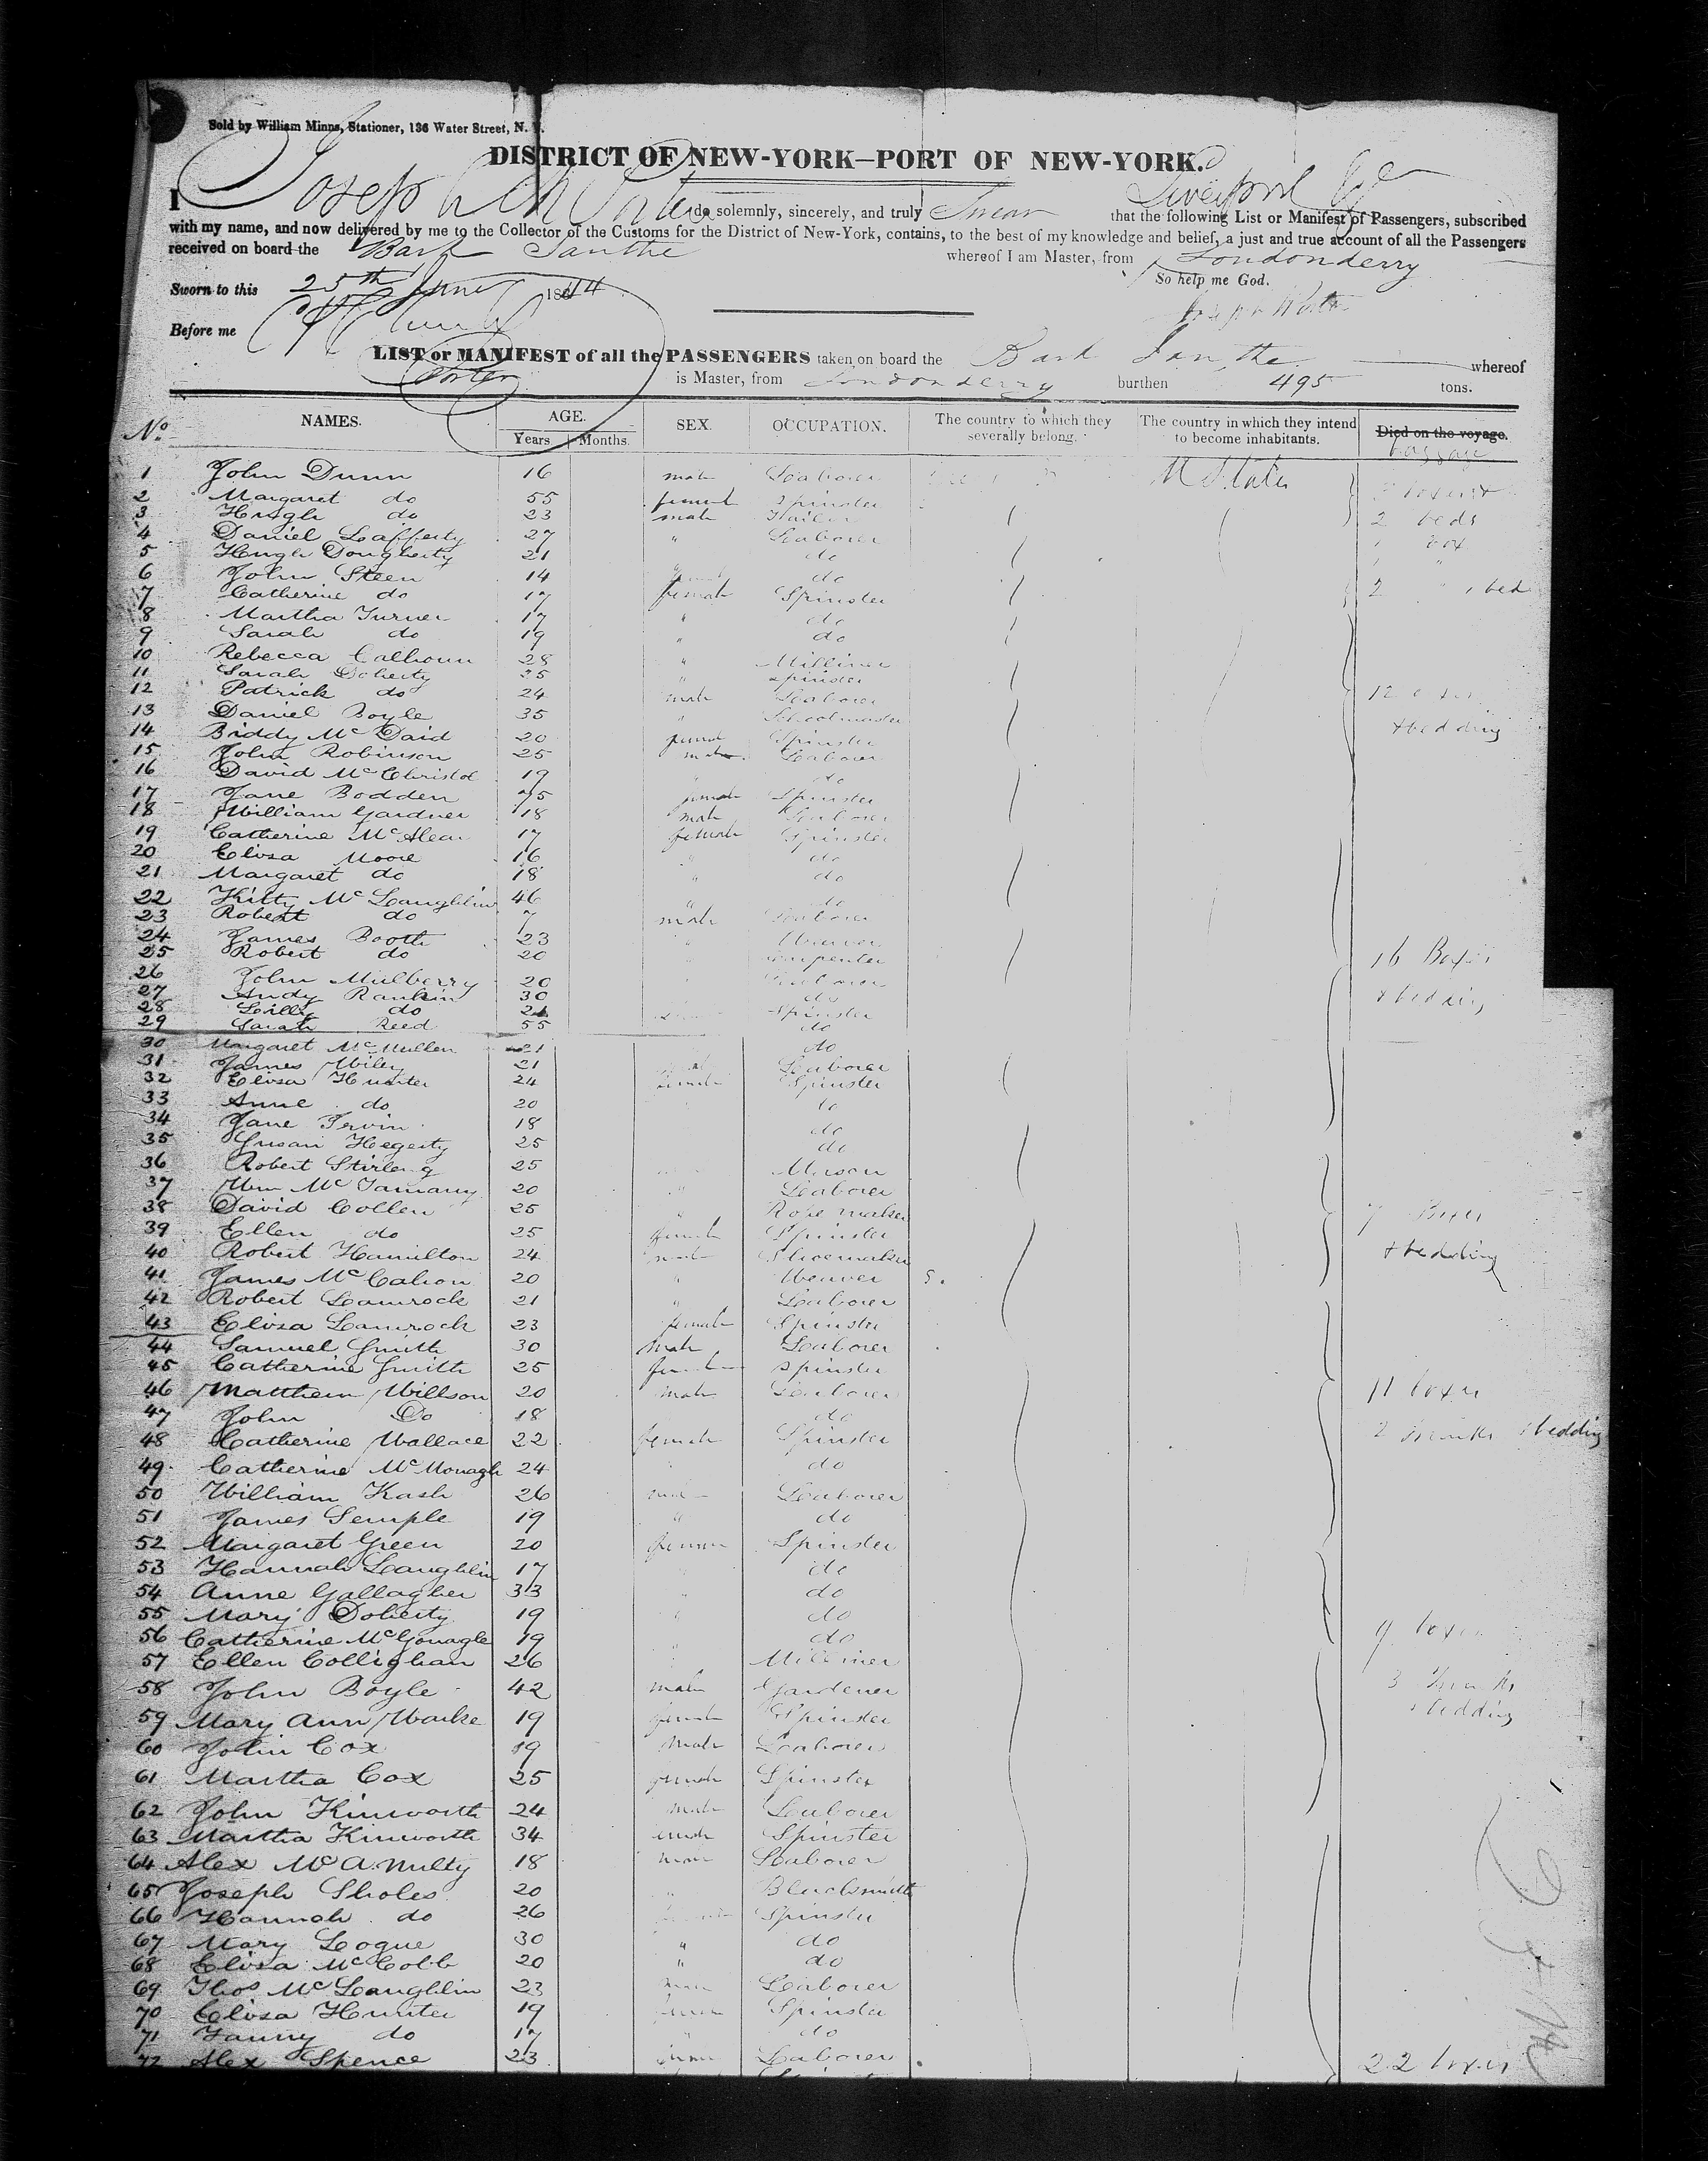 Sold by William Minns, Stationer, 136 Water Street, N. Y.
DISTRICT OF NEW-YORK—PORT OF NEW-YORK.
I Joseph do solemnly, sincerely, and truly Swear that the following List or Manifest of Passengers, subscribed
Liverpool
with my name, and now delivered by me to the Collector of the Customs for the District of New-York, contains, to the best of my knowledge and belief, a just and true account of all the Passengers
received on board the Bark Ianthe whereof I am Master, from Londonderry
Sworn to this 25th June 1844 So help me God.
Before me
LIST or MANIFEST of all the PASSENGERS taken on board the Bark Ianthe whereof
Porter is Master, from Londonderry burthen 495 tons.
No. NAMES. AGE. Years. Months. SEX. OCCUPATION. The country to which they severally belong. The country in which they intend to become inhabitants. Died on the voyage.
1 John Dunn 16 male Laborer U States
2 Margaret do 55 female Spinster
3 Hugh do 23 male Tailor 2 beds
4 Daniel Lafferty 27 " Laborer 1 box
5 Hugh Dougherty 21 do
6 John Steen 14 do
7 Catherine do 17 female Spinster 2 " 1 bed
8 Martha Turner 17 " do
9 Sarah do 19 " do
10 Rebecca Calhoun 28 " Milliner
11 Sarah Doherty 25 " Spinster
12 Patrick do 24 male Laborer 12
13 Daniel Boyle 35 " Schoolmaster
14 Biddy McDaid 20 female Spinster & bedding
15 John Robinson 25 male Laborer
16 David McChristol 19 " do
17 Jane Bodden 75 female Spinster
18 William Gardner 18 male Laborer
19 Catherine McAlear 17 female Spinster
20 Elisa Moore 16 " do
21 Margaret do 18 " do
22 Kitty McLaughlin 46 " do
23 Robert do 7 male Laborer
24 James Booth 23 " Weaver
25 Robert do 20 " Carpenter 16 Boxes
26 John Mulberry 20 Laborer
27 Andy Rankin 30 do & bedding
28 Lilly do 21 Spinster
29 Sarah Reed 55 do
30 Margaret McMullen 21 do
31 James Wiley 21 Laborer
32 Elisa Hunter 24 female Spinster
33 Anne do 20 do
34 Jane Irvin 18 do
35 Susan Hegerty 25 do
36 Robert Stirling 25 Mason
37 Wm McTamany 20 " Laborer
38 David Collen 25 " Rope maker 7 Boxes
39 Ellen do 25 female Spinster
40 Robert Hamilton 24 male Shoemaker & bedding
41 James McCahon 20 " Weaver
42 Robert Lamrock 21 " Laborer
43 Elisa Lamrock 23 female Spinster
44 Samuel Smith 30 male Laborer
45 Catherine Smith 25 female Spinster
46 Matthew Willson 20 male Laborer 11 boxes
47 John Do 18 do
48 Catherine Wallace 22 female Spinster 2 trunks & bedding
49 Catherine McMonagle 24 do
50 William Kash 26 male Laborer
51 James Semple 19 " do
52 Margaret Green 20 female Spinster
53 Hannah Laughlin 17 do
54 Anne Gallagher 33 " do
55 Mary Doherty 19 " do
56 Catherine McGonagle 19 " do 9 boxes
57 Ellen Collighan 26 Milliner
58 John Boyle 42 male Gardener 3 trunks
59 Mary Ann Warke 19 female Spinster & bedding
60 John Cox 19 male Laborer
61 Martha Cox 25 female Spinster
62 John Kinworth 24 male Laborer
63 Martha Kinworth 34 female Spinster
64 Alex McAnulty 18 male Laborer
65 Joseph Sholes 20 " Blacksmith
66 Hannah do 26 female Spinster
67 Mary Logue 30 " do
68 Elisa McCobb 20 " do
69 Thos McLaughlin 23 male Laborer
70 Elisa Hunter 19 female Spinster
71 Fanny do 17 " do
72 Alex Spence 23 male Laborer 22 boxes